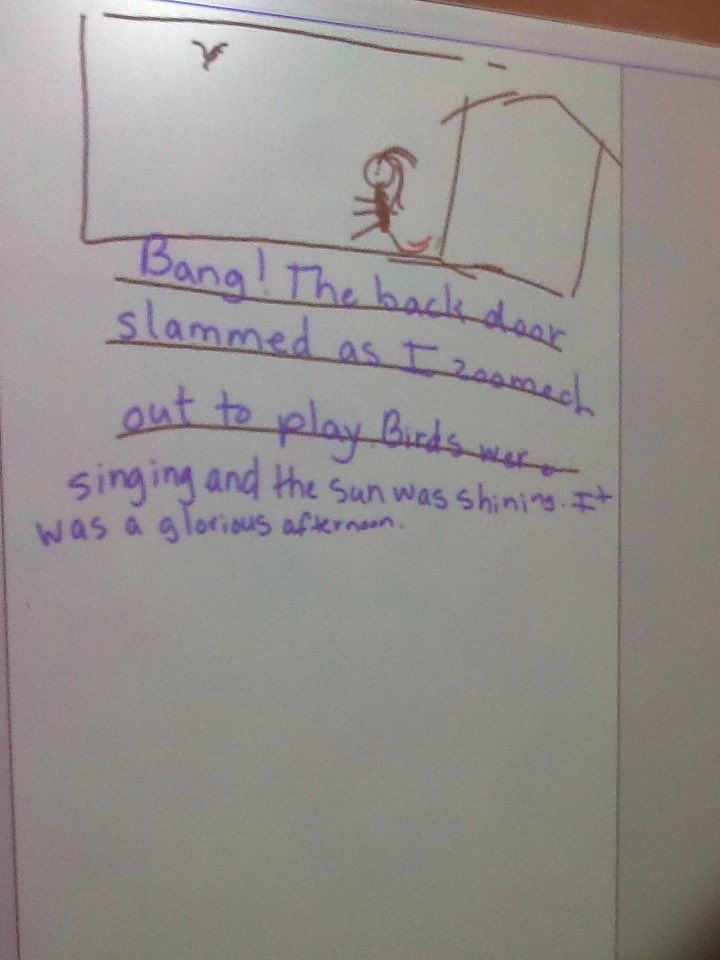 Bang! The back door
slammed as I zoomed
out to play. Birds were
singing and the sun was shining. It
was a glorious afternoon.